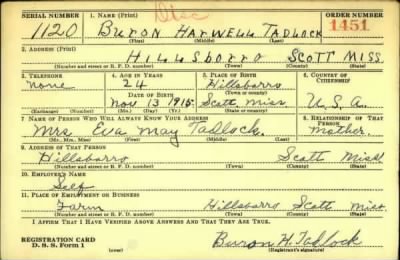 SERIAL NUMBER 1. NAME (Print) ORDER NUMBER
1120 BURON HARWELL TADLOCK 1451
(First) (Middle) (Last)
2. ADDRESS (Print)
HILLSBORRO SCOTT MISS.
(Number and street or R. F. D. number) (Town) (County) (State)
3. TELEPHONE 4. AGE IN YEARS 5. PLACE OF BIRTH 6. COUNTRY OF CITIZENSHIP
none 24 Hillsborro
DATE OF BIRTH (Town or county)
Nov 13 1915 Scott Miss U.S.A.
(Exchange) (Number) (Mo.) (Day) (Yr.) (State or country)
7. NAME OF PERSON WHO WILL ALWAYS KNOW YOUR ADDRESS 8. RELATIONSHIP OF THAT PERSON
Mrs. Eva May Tadlock. mother.
(Mr., Mrs., Miss) (First) (Middle) (Last)
9. ADDRESS OF THAT PERSON
Hillsborro Scott Miss.
(Number and street or R. F. D. number) (Town) (County) (State)
10. EMPLOYER'S NAME
Self
11. PLACE OF EMPLOYMENT OR BUSINESS
Farm Hillsborro Scott Miss
(Number and street or R. F. D. number) (Town) (County) (State)
I AFFIRM THAT I HAVE VERIFIED ABOVE ANSWERS AND THAT THEY ARE TRUE.
REGISTRATION CARD Buron H. Tadlock
D. S. S. Form 1 (Registrant's signature)